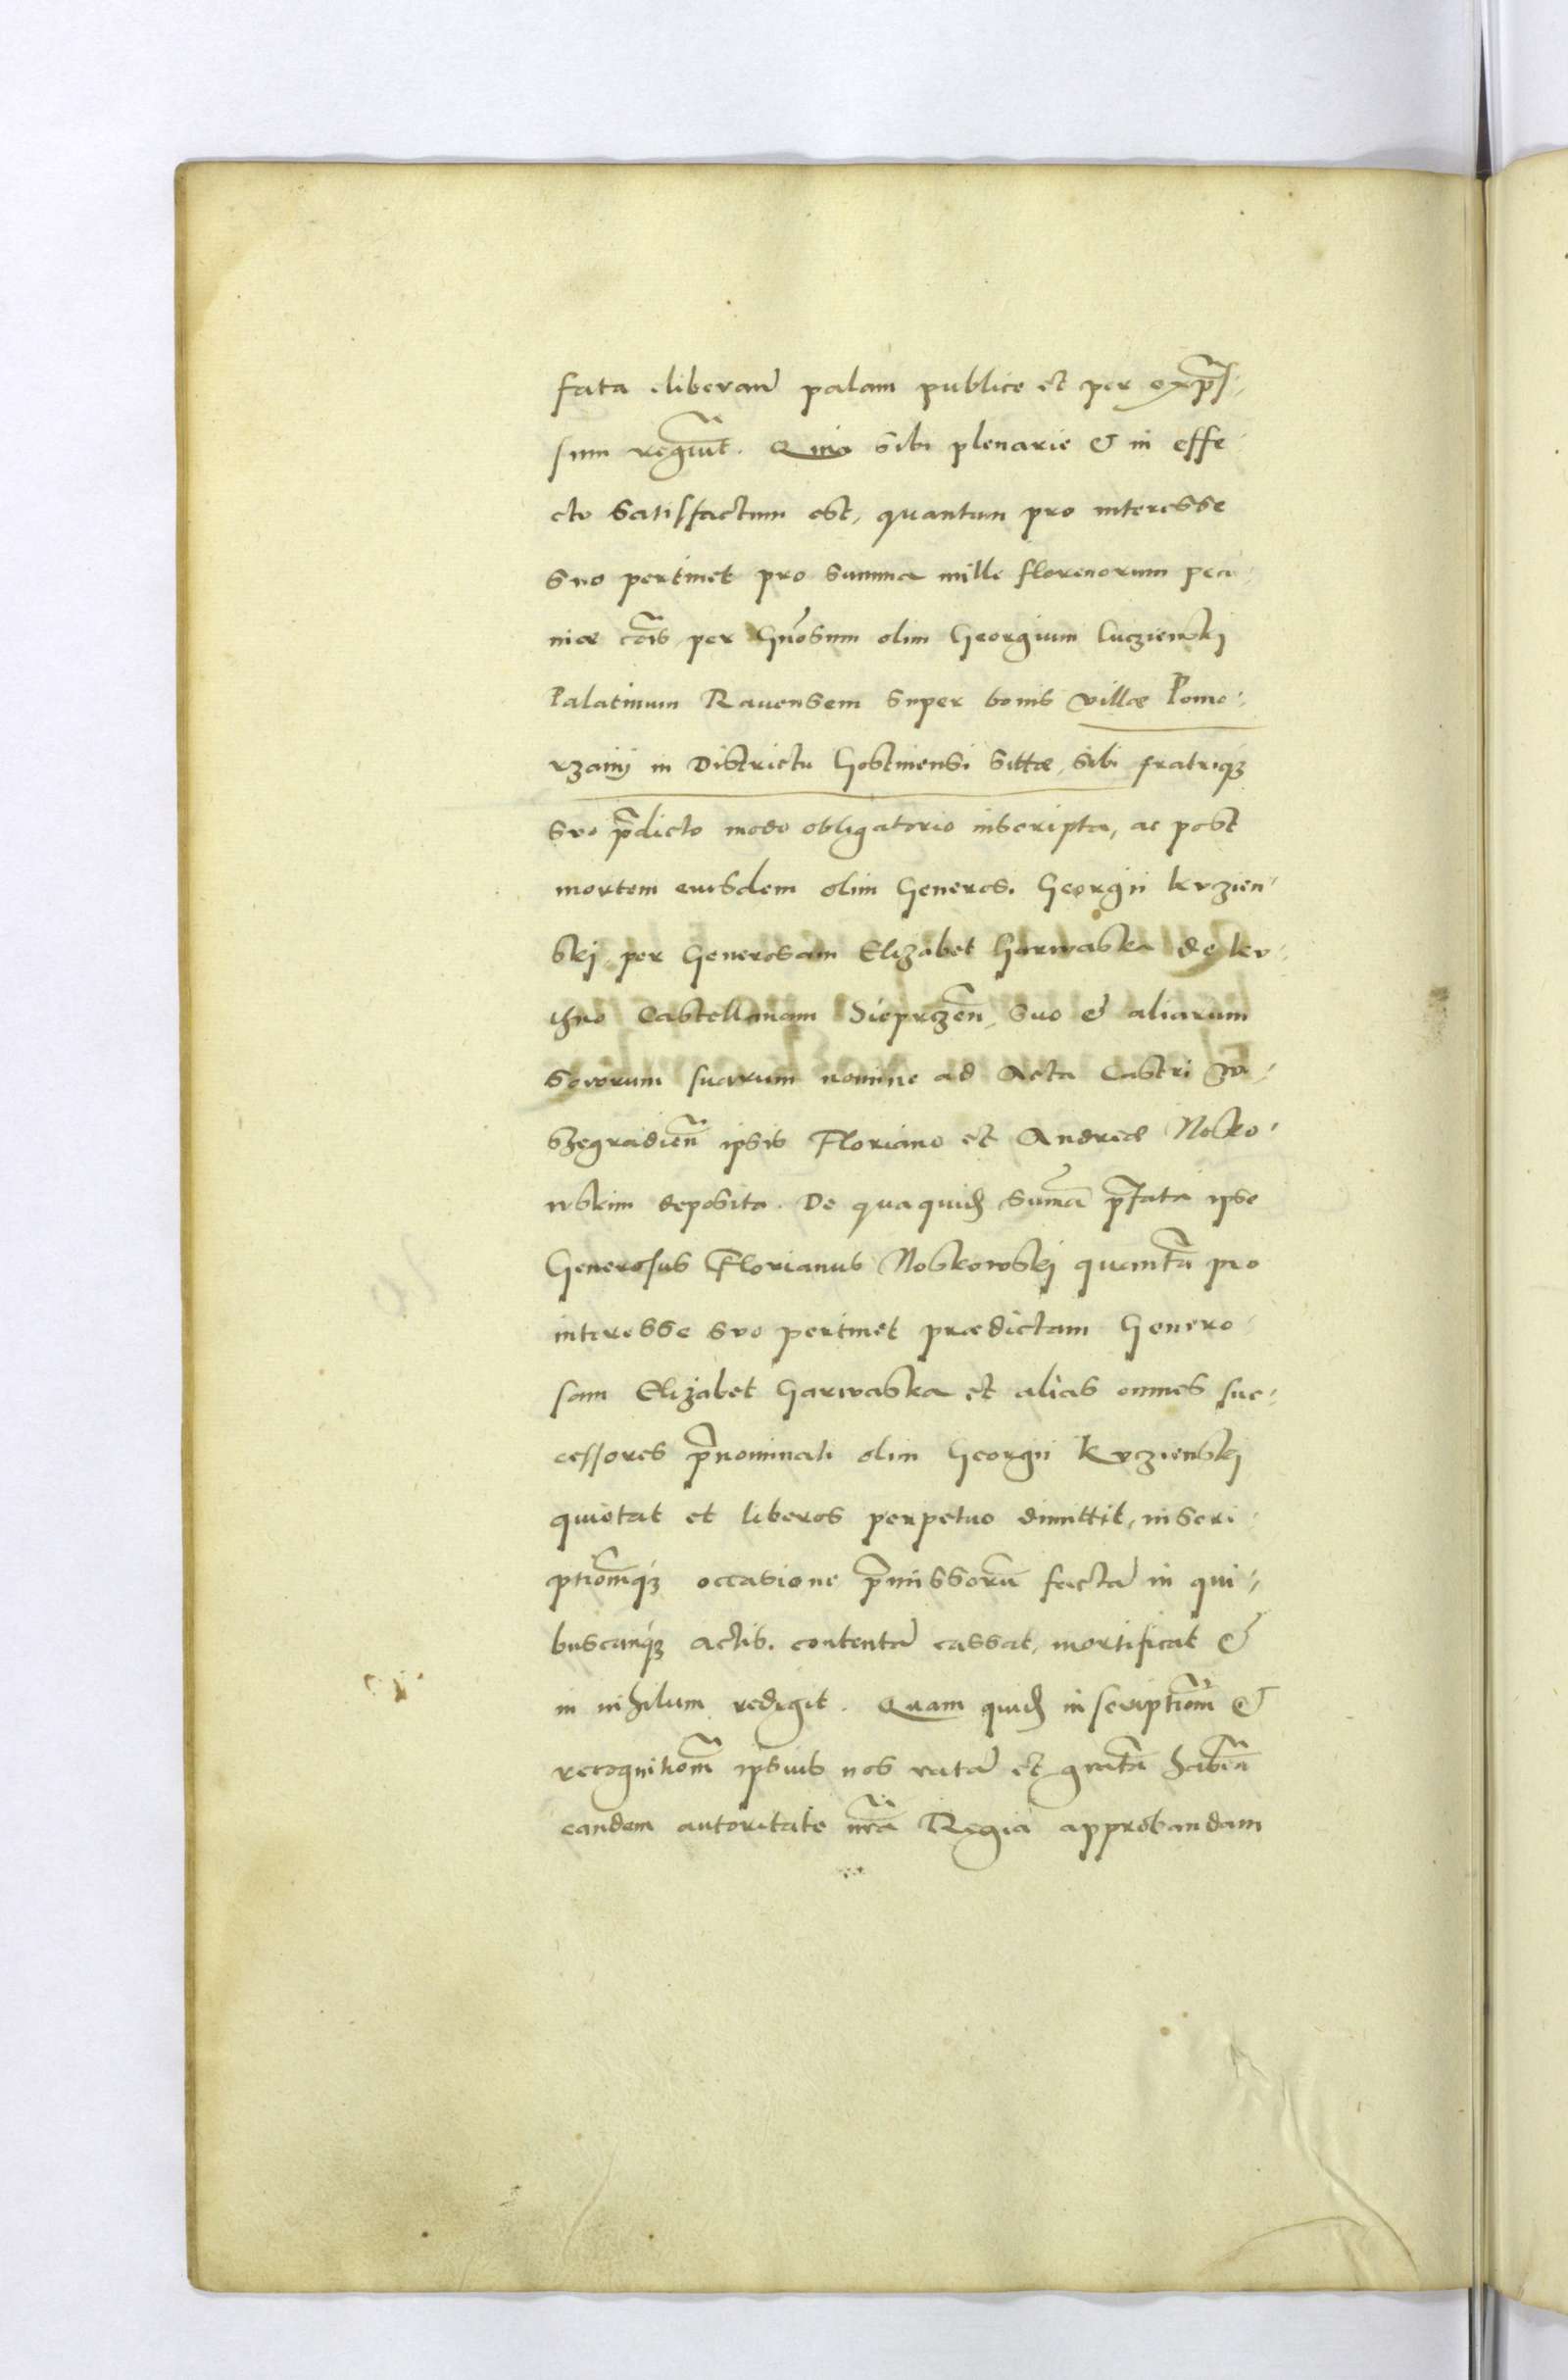 fata liberam̄ palam publice et per exp̄s¬
sum recog̃uit. Quia sibi plenarie & in effe¬
cto satisfactum est, quantum pro interesse
suo pertinet pro summa mille florenorum pecu¬
niæ cōis per Gn̄osum olim Georgium Kuczienskj
Palatinum Rauensem super bonis villæ Pomo¬
rzanij in Districtu Gostinensi sittæ, sibi fratriq3
suo p̄dicto modo obligatorio inscripta, ac post
mortem eiusdem olim Generos. Georgii Krczien¬
skj per Generosam Elizabet Garwaska de
Castellanam Sieprczen̄, suo & aliarum
sororum suarum nomine ad Acta Castri Wi¬
szegradien̄ ipsis Floriano et Andreæ Nosko¬
wskim deposita. De qua quid3 sum̄a p̄fata ipse
Generosus Florianus Noskowskj quantū pro
interesse suo pertinet prædictam Genero¬
sam Elizabet Garwaska et alias omnes suc¬
cessores p̄nominati olim Georgii Krczienskj
quietat et liberos perpetuo dimittit, inscri¬
ptiōmq3 occasione p̄missorū factā in qui¬
buscunq3 actib. contentā cassat, mortificat &
in nihilum redigit. Quam quid3 inscriptiōm &
recognitiom̄ ipsius nos ratā et gratā haben̄
eandem autoritate nr̄a Regia approbandam